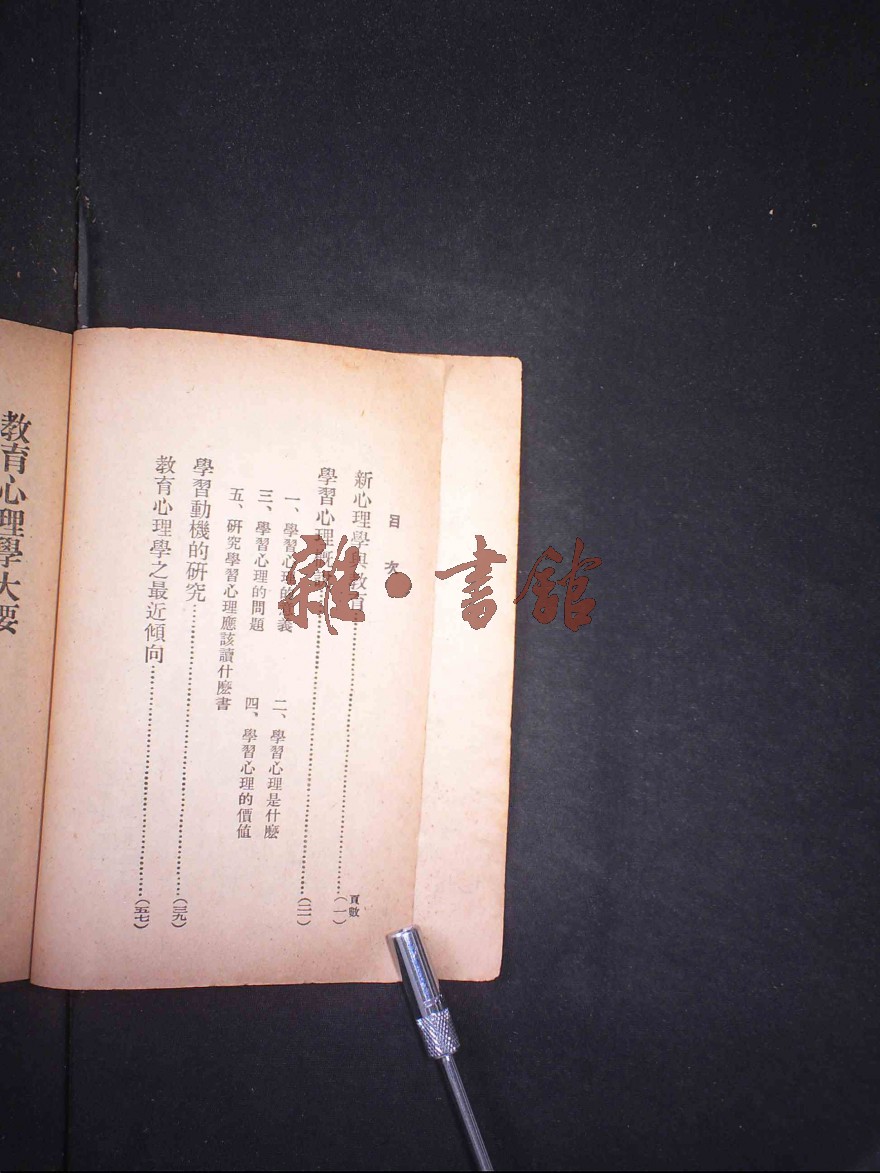 目次
頁數
新心理學與教育……(一)
學習心理概……(二一)
一、學習心理的意義　二、學習心理是什麽
三、學習心理的問題　四、學習心理的價值
五、研究學習心理應該讀什麽書
學習動機的研究……(三九)
教育心理學之最近傾向……(五七)
教育心理學大要
雜·書館